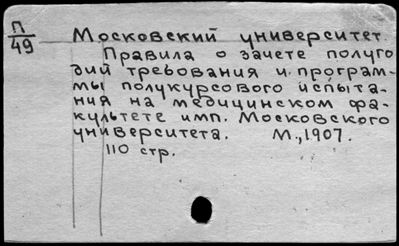 П
49
Московский университет.
Правила о зачете полуго
дий требования и програм-
мы полукурсового испыта-
ния на медицинском фа-
культете имп. Московского
университета. М., 1907.
110 стр.